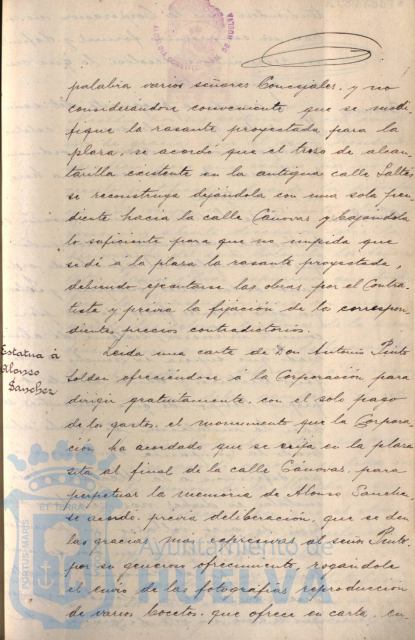 palabra varios señores Concejales, y no
considerándose conveniente que se modi-
fique la rasante proyectada para la
plaza, se acordó que el trozo de alcan-
tarilla existente en la antigua calle Saltés
se reconstruya dejándola con una sola pen-
diente hacia la calle Cánovas y bajándola
lo suficiente para que no impida que
se dé á la plaza la rasante proyectada,
debiendo ejecutarse las obras por el Contra-
tista y previa la fijación de los correspon-
dientes precios contradictorios.
Estatua á
Alonso
Sánchez
Leida una carte de Don Antonio Pinto
Soldan ofreciéndose á la Corporación para
dirigir gratuitamente, con el solo pago
de los gastos, el monumento que la Corpora-
ción ha acordado que se erija en la plaza
sita al final de la calle Cánovas, para
perpetuar la memoria de Alonso Sanchez
se acordó, previa deliberación, que se den
las gracias mas expresivas al señor Pinto
por su generoso ofrecimiento, rogándole
el envio de las fotografías reproducción
de varios bocetos que ofrece en carta, en
PORTUS MARIS
ET TERRAE
Ayuntamiento de
HUELVA